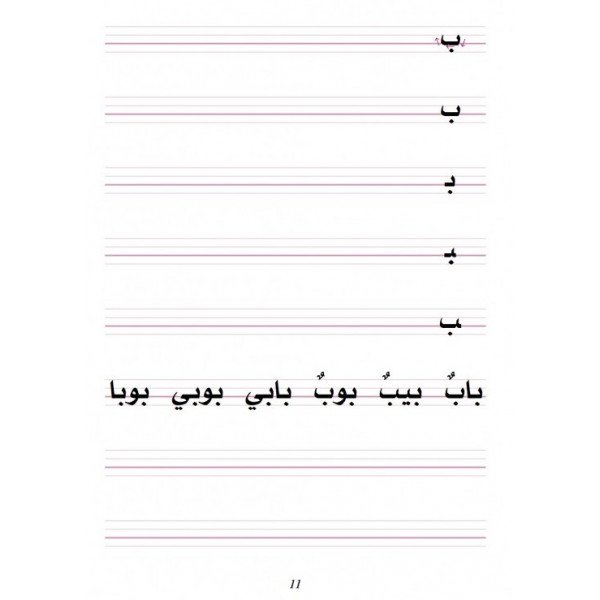 ب
ب
بـ
ـبـ
ـب
بابٌ بيبٌ بوبٌ بابي بوبي بوبا
11